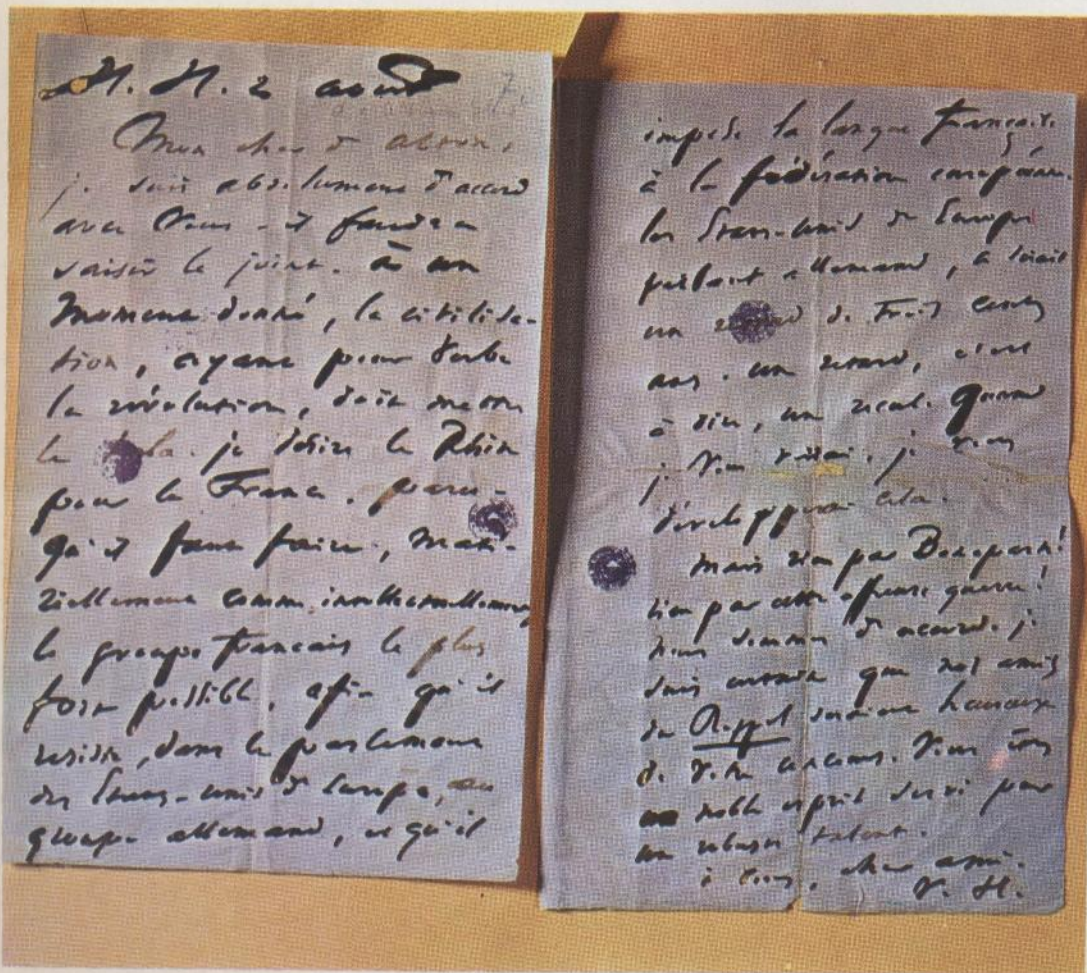 H. H. 2 août
Mon cher d'Alton,
je suis absolument d'accord
avec vous. il faudra
saisir le joint. à un
moment donné, la civilisa-
tion, ayant pour verbe
la révolution, doit mettre
le holà. je désire le Rhin
pour la France, parce
qu'il faut faire, maté-
riellement comme intellectuellement,
le groupe français le plus
fort possible, afin qu'il
résiste, dans le parlement
des États-unis d'Europe, au
groupe allemand, et qu'il
impose la langue française
à la fédération européenne.
les États-unis d'Europe
parlant allemand, ce serait
un retard de trois cents
ans. un retard, c'est
à dire, un recul. Quand
je vous verrai, je vous
développerai cela.
mais rien par Bonaparte!
rien par cette affreuse guerre!
nous sommes d'accord. je
suis certain que nos amis
du Rappel seraient heureux
de votre concours. Vous êtes
un noble esprit servi par
un robuste talent.
à vous, cher ami.
V. H.